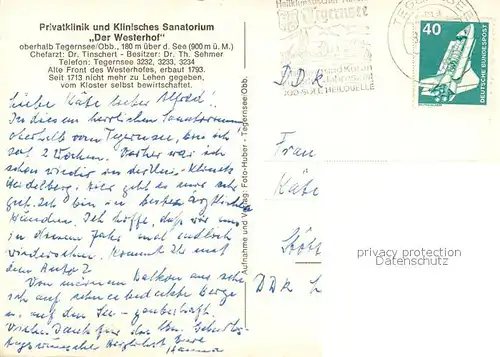 Privatklinik und Klinisches Sanatorium
„Der Westerhof"
oberhalb Tegernsee/Obb., 180 m über d. See (900 m ü. M.)
Chefarzt: Dr. Tinschert - Besitzer: Dr. Th. Sehmer
Telefon: Tegernsee 3232, 3233, 3234
Alte Front des Westerhofes, erbaut 1793.
Seit 1713 nicht mehr zu Lehen gegeben,
vom Kloster selbst bewirtschaftet.
Liebe Käte lieber Alfred!
In diesem herrlichen Sanatorium
oberhalb vom Tegernsee, bin ich
seit 2 Wochen. Vorher war ich
schon wieder in der Univ-Klinik
Heidelberg. Hier geht es mir sehr
gut. Ich bin in besten ärztlichen
Händen. Ich hoffe, daß wir uns
in diesem Jahr mal endlich
wiedersehen. Kommt Ihr mit
dem Auto?
Von meinem Balkon aus sehe
ich auf schneebedeckte Berge
u. auf den See - zauberhaft.
Vielen Dank für die lbn. Geburts-
tagswünsche Herzlichst Eure
Hanna
Aufnahme und Verlag: Foto-Huber - Tegernsee/Obb.
Tegernsee
JOD-SCHWEFEL HEILQUELLE
TEGERNSEE
40
DEUTSCHE BUNDESPOST
DDR
Frau
Käte
DDR
privacy protection
Datenschutz